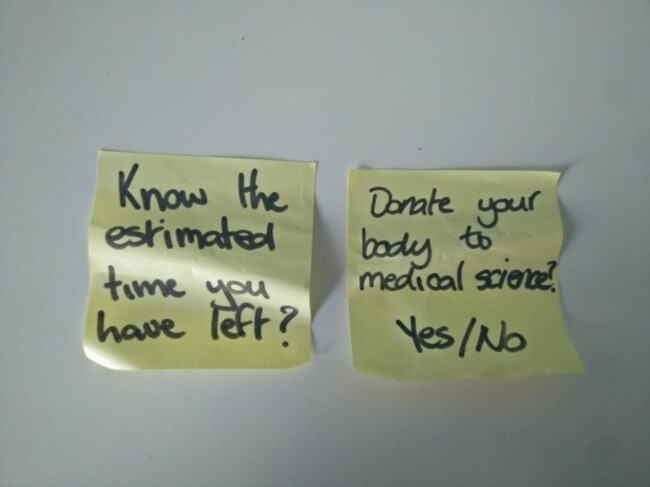 Know the
estimated
time you
have left?
Donate your
body to
medical science?
Yes/No